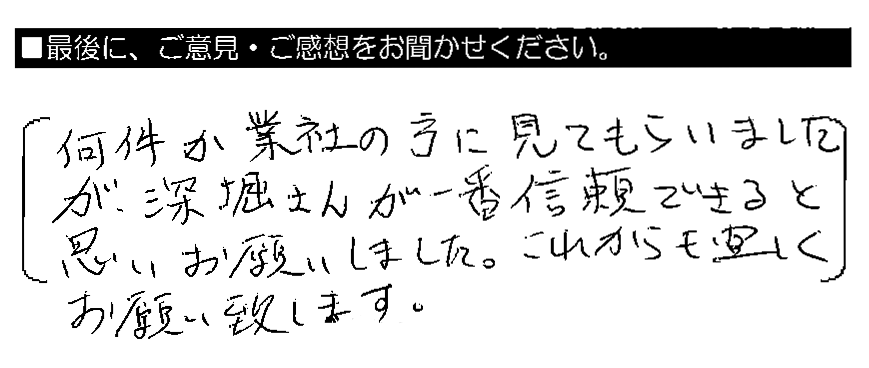 ■最後に、ご意見・ご感想をお聞かせください。
何件か業社の方に見てもらいました
が、深堀さんが一番信頼できると
思いお願いしました。これからも宜しく
お願い致します。